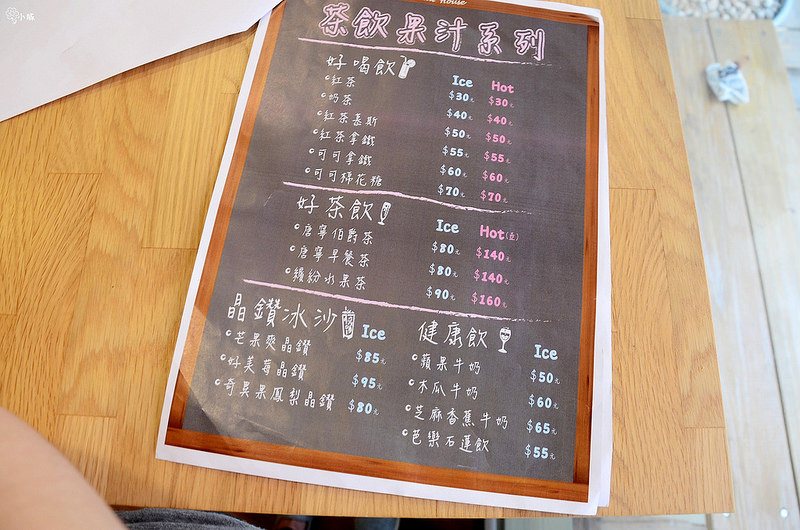 小依
House
茶飲果汁系列
好喝飲 Ice Hot
紅茶 $30元 $30元
奶茶 $40元 $40元
紅茶慕斯 $50元 $50元
紅茶拿鐵 $55元 $55元
可可拿鐵 $60元 $60元
可可棉花糖 $70元 $70元
好茶飲 Ice Hot(壺)
唐寧伯爵茶 $80元 $140元
唐寧早餐茶 $80元 $140元
繽紛水果茶 $90元 $160元
晶鑽冰沙 Ice
芒果爽晶鑽 $85元
好芙莓晶鑽 $95元
奇異果鳳梨晶鑽 $80元
健康飲 Ice
蘋果牛奶 $50元
木瓜牛奶 $60元
芝麻香蕉牛奶 $65元
芭樂石蓮飲 $55元